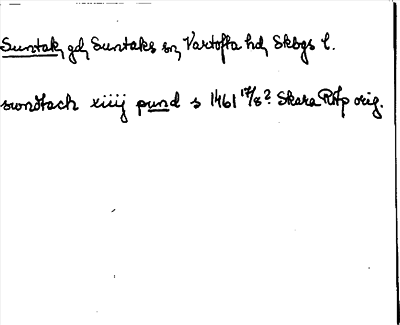 Suntak, gd, Suntaks sn, Vartofta hd, Skbgs l.
swndtach xiiij pund s 1461 17/8? Skara RAp orig.